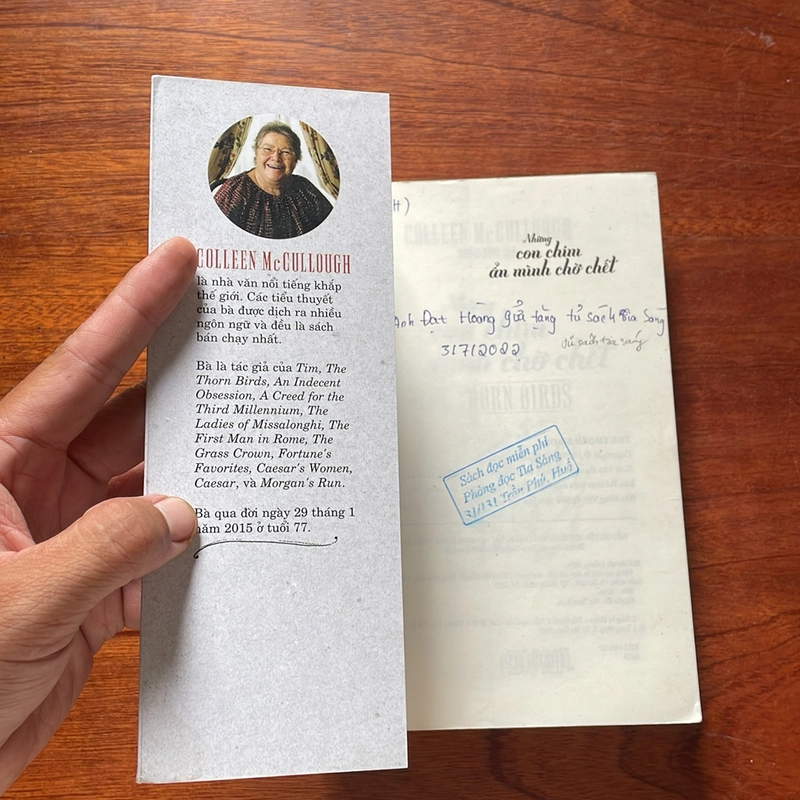 COLLEEN McCULLOUGH
là nhà văn nổi tiếng khắp
thế giới. Các tiểu thuyết
của bà được dịch ra nhiều
ngôn ngữ và đều là sách
bán chạy nhất.
Bà là tác giả của Tim, The
Thorn Birds, An Indecent
Obsession, A Creed for the
Third Millennium, The
Ladies of Missalonghi, The
First Man in Rome, The
Grass Crown, Fortune's
Favorites, Caesar's Women,
Caesar, và Morgan's Run.
Bà qua đời ngày 29 tháng 1
năm 2015 ở tuổi 77.
H)
Những
con chim
ẩn mình chờ chết
Anh Đạt Hoàng gửi tặng tủ sách Tia Sáng
31/7/2022
tủ sách tia sáng
Sách đọc miễn phí
Phòng đọc Tia Sáng
31/131 Trần Phú, Huế
COLLEEN McCULLOUGH
chờ chết
THORN BIRDS